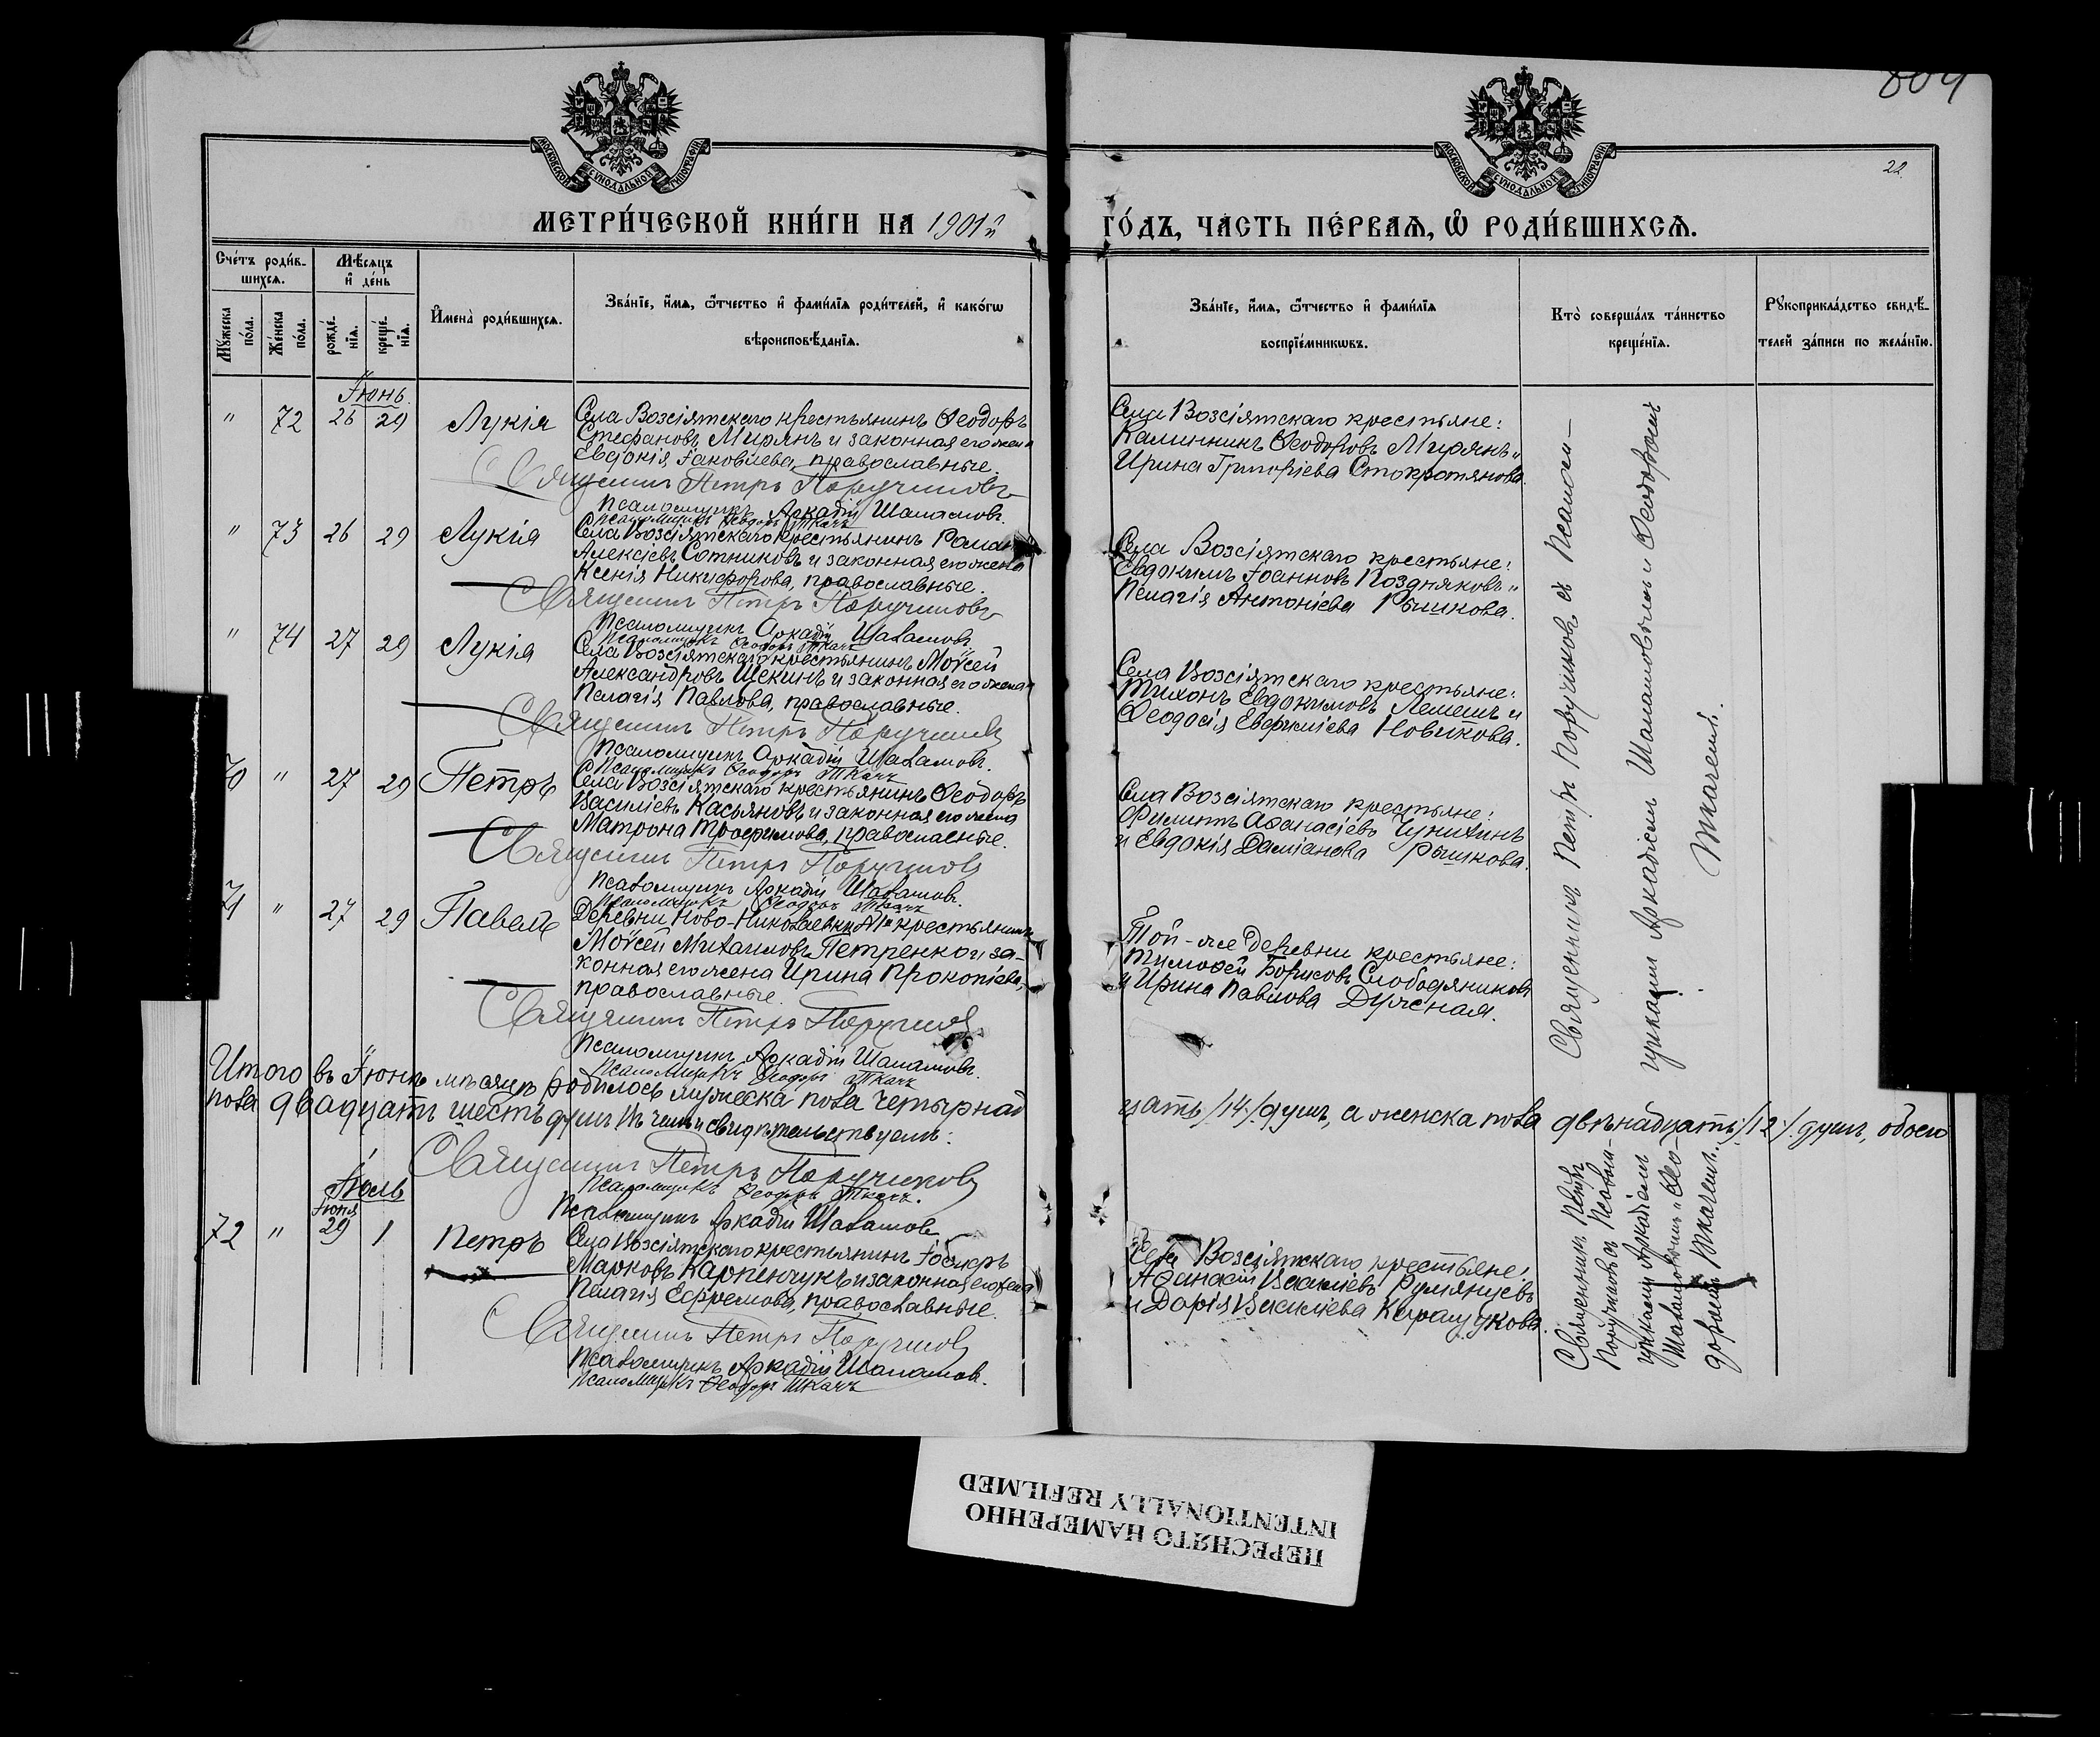 804
22.
МОСКОВСКОЙ СѴНОДАЛЬНОЙ ТИПОГРАФІИ
МОСКОВСКОЙ СѴНОДАЛЬНОЙ ТИПОГРАФІИ
МЕТРИ́ЧЕСКОЙ КНИ́ГИ НА 1901й
ГО́ДЪ, ЧАСТЬ ПЕ́РВАѦ, Ѿ РОДИ́ВШИХСѦ.
Сче́тъ роди́вшихсѧ.
Мѣ́сѧцъ и҆ де́нь
Мꙋ́жеска по́ла.
Же́нска по́ла.
рожде́нїѧ.
креще́нїѧ.
И҆мена̀ роди́вшихсѧ.
Зва́нїе, и҆́мѧ, ѻ҆́тчество и҆ фами́лїѧ роди́телей, и҆ како́гѡ
вѣроисповѣ́данїѧ.
Зва́нїе, и҆́мѧ, ѻ҆́тчество и҆ фами́лїѧ
воспрїе́мникѡвъ.
Кто̀ соверша́лъ та́инство
креще́нїѧ.
Рꙋкоприкла́дство свидѣ́-
телей за́писи по жела́нїю.
Іюнь.
" 72 26 29 Лукія
Села Возсіятскаго крестьянинъ Ѳеодоръ
Стефановъ Мирянъ и законная его жена
Евдокія Іаковлева, православные.
Священникъ Петръ Поручиковъ
Псаломщикъ Аркадій Шаламовъ.
Псаломщикъ Ѳеодоръ Ткачъ
Села Возсіятскаго крестьяне:
Калинникъ Ѳеодоровъ Мирянъ и
Ирина Григоріева Стокротянова.
" 73 26 29 Лукія
Села Возсіятскаго крестьянинъ Романъ
Алексіевъ Сотниковъ и законная его жена
Ксенія Никифорова, православные.
Священникъ Петръ Поручиковъ
Псаломщикъ Аркадій Шаламовъ
Псаломщикъ Ѳеодоръ Ткачъ
Села Возсіятскаго крестьяне:
Евдокимъ Іоанновъ Поздняковъ и
Пелагія Антоніева Рышкова.
" 74 27 29 Лукія
Села Возсіятскаго крестьянинъ Моѵсей
Александровъ Щекинъ и законная его жена
Пелагія Павлова, православные.
Священникъ Петръ Поручиковъ
Псаломщикъ Аркадій Шаламовъ.
Псаломщикъ Ѳеодоръ Ткачъ
Села Возсіятскаго крестьяне:
Тихонъ Евдокимовъ Лемешъ и
Ѳеодосія Евфиміева Новикова.
70 " 27 29 Петръ
Села Возсіятскаго крестьянинъ Ѳеодоръ
Василіевъ Касьяновъ и законная его жена
Матрона Трофимова, православные.
Священникъ Петръ Поручиковъ
Псаломщикъ Аркадій Шаламовъ.
Псаломщикъ Ѳеодоръ Ткачъ
Села Возсіятскаго крестьяне:
Филиппъ Аѳанасіевъ Чунихинъ
и Евдокія Даміанова Рышкова.
71 " 27 29 Павелъ
Деревни Ново-Николаевки крестьянинъ
Моѵсей Михаиловъ Петренко и за-
конная его жена Ирина Прокопіева,
православные.
Священникъ Петръ Поручиковъ
Псаломщикъ Аркадій Шаламовъ.
Псаломщикъ Ѳеодоръ Ткачъ
Той-же деревни крестьяне:
Тимоѳей Борисовъ Слободяниковъ
и Ирина Павлова Дурченая.
Священникъ Петръ Поручиковъ съ Псалом-
щиками Аркадіемъ Шаламовымъ и Ѳеодоромъ
Ткачемъ.
Итого въ Іюнѣ мѣсяцѣ родилось мужеска пола четырнад
цать /14/ душъ, а женска пола двѣнадцать /12/ душъ, обоего
пола двадцать шесть душъ въ чемъ и свидѣтельствуемъ:
Священникъ Петръ Поручиковъ
Псаломщикъ Ѳеодоръ Ткачъ.
Псаломщикъ Аркадій Шаламовъ
Іюль
Іюня
72 " 29 1 Петръ
Села Возсіятскаго крестьянинъ Іосифъ
Марковъ Карпенчукъ и законная его жена
Пелагія Ефремова, православные.
Священникъ Петръ Поручиковъ
Псаломщикъ Аркадій Шаламовъ.
Псаломщикъ Ѳеодоръ Ткачъ
Села Возсіятскаго крестьяне:
Аѳанасій Василіевъ Румянцевъ
и Дарія Василіева Каращукова.
Священникъ Петръ
Поручиковъ съ Псалом-
щиками Аркадіемъ
Шаламовымъ и Ѳео-
доромъ Ткачемъ.
ПЕРЕСНЯТО НАМЕРЕННО
INTENTIONALLY REFILMED